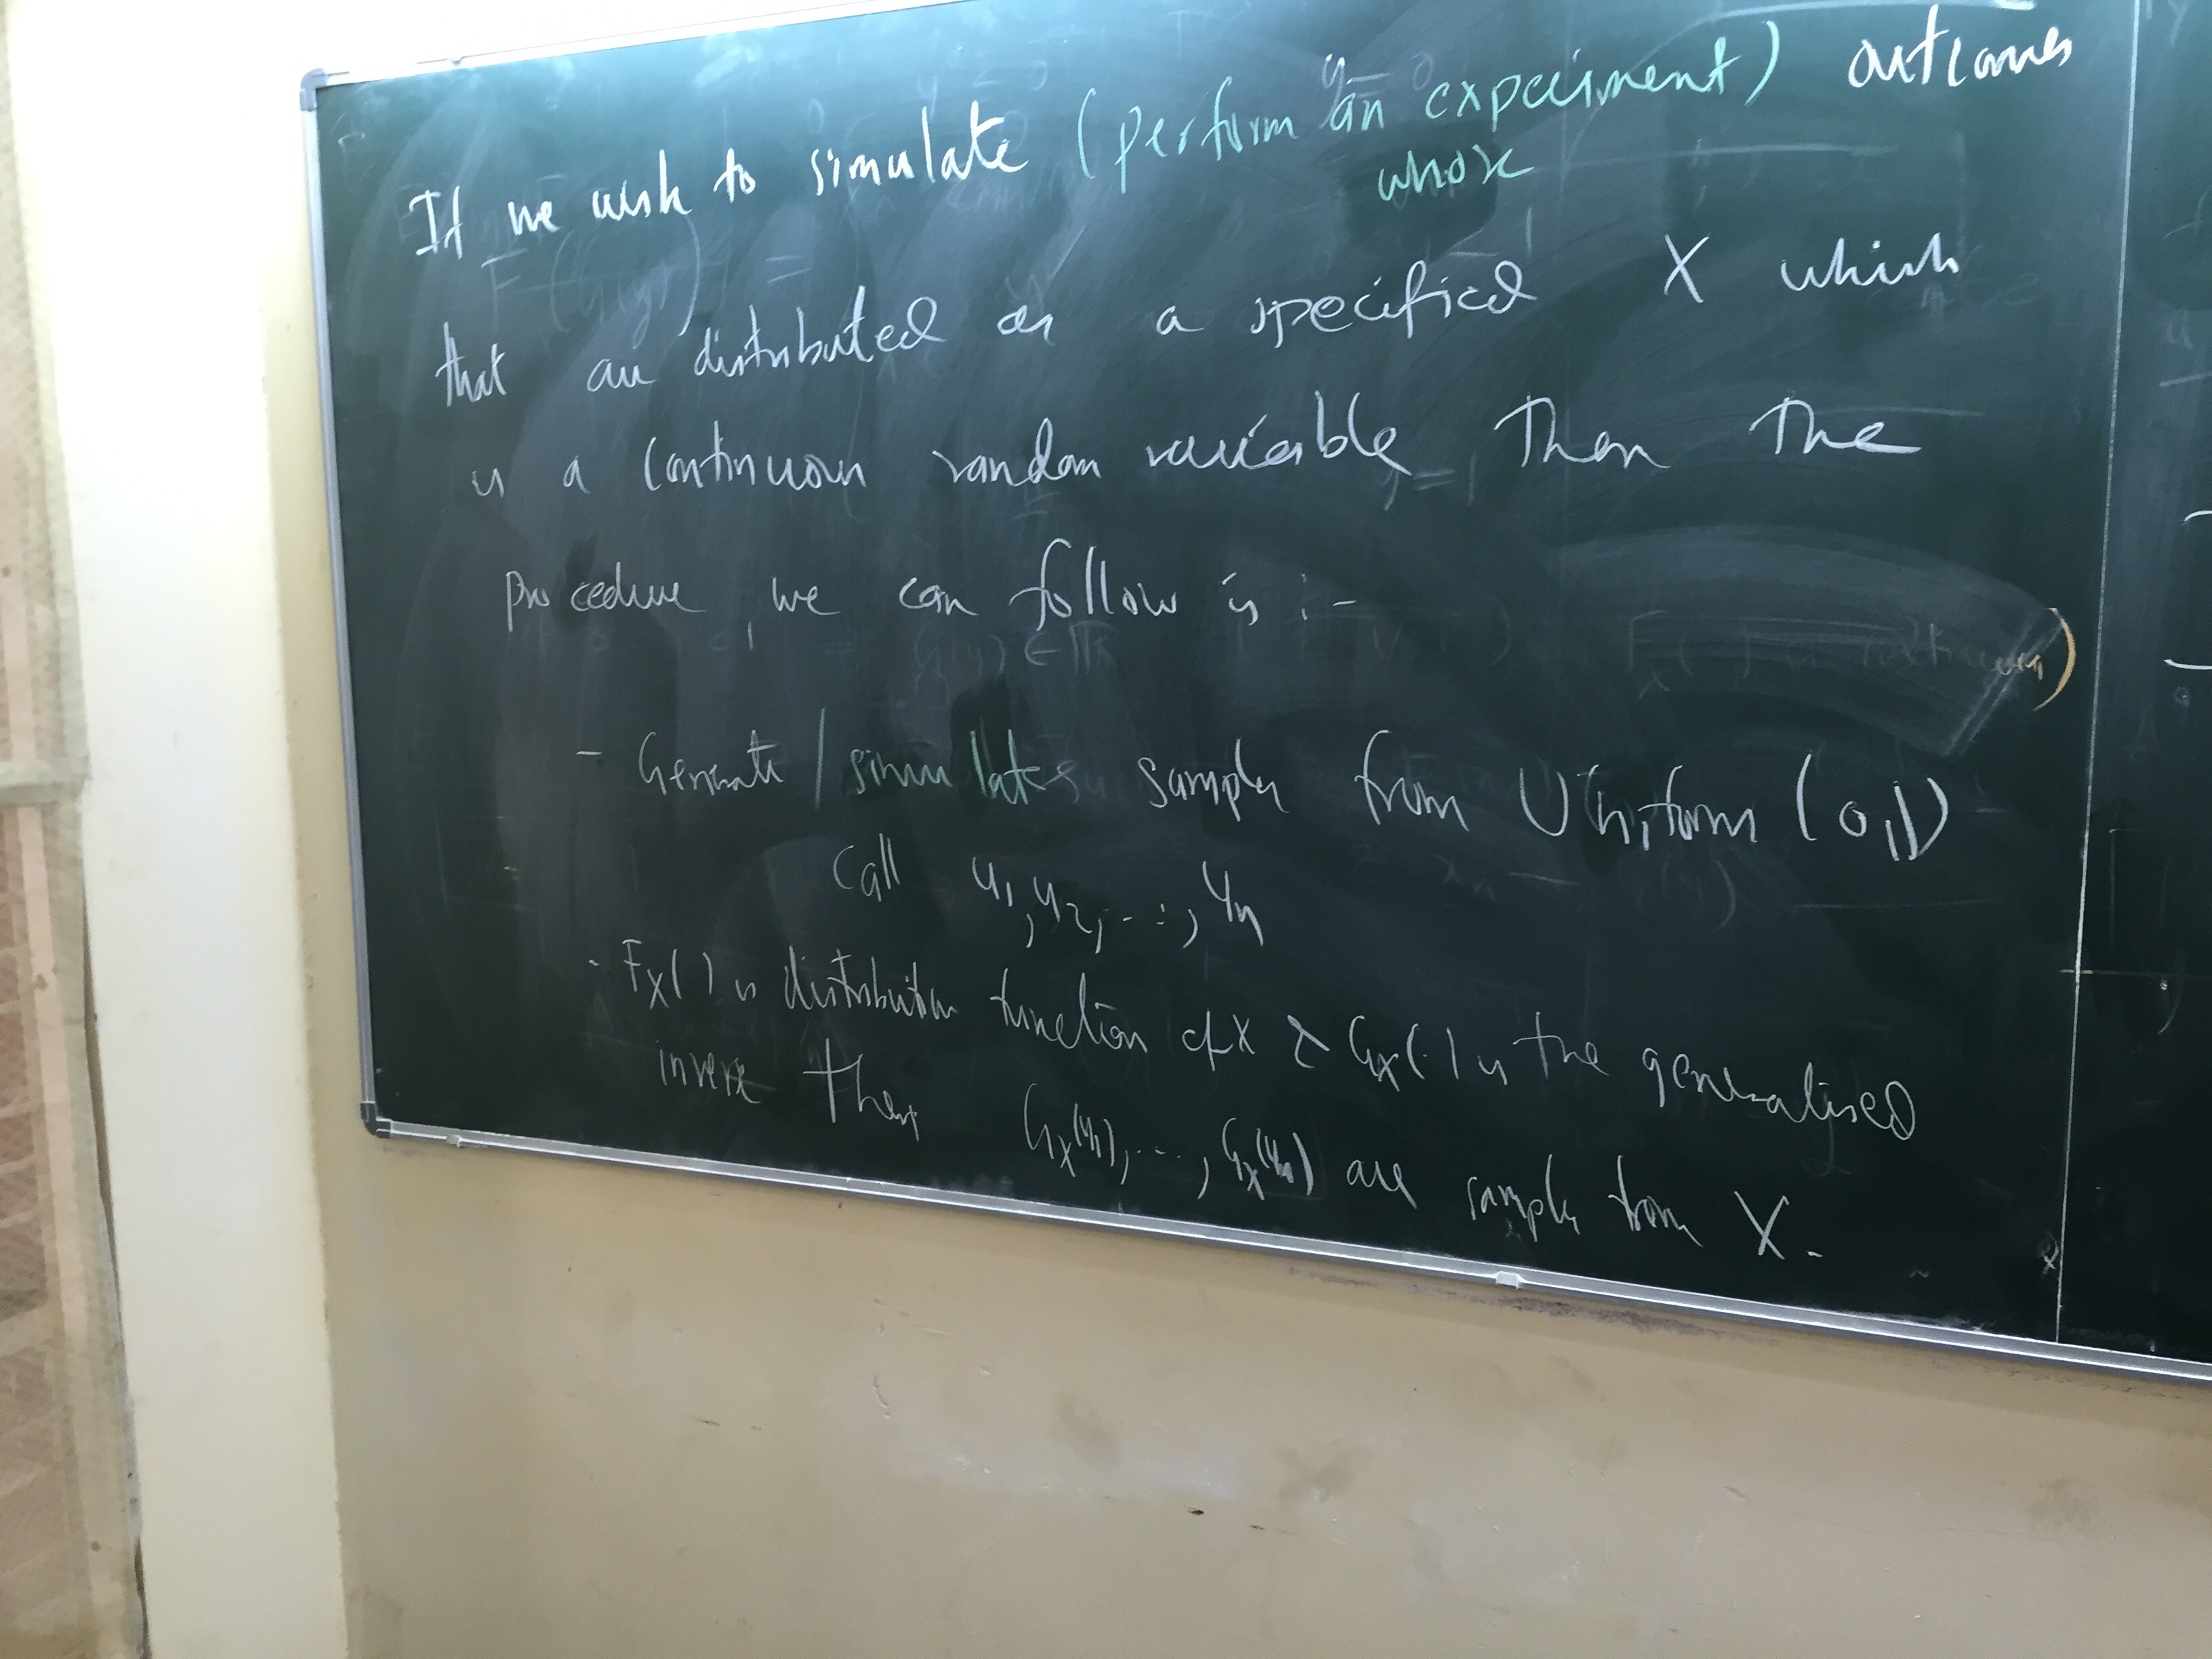 If we wish to simulate (perform an experiment) outcomes
whose
that are distributed as a specified X which
is a continuous random variable Then The
procedure we can follow is :-
- Generate / simulate samples from Uniform (0,1)
Call u₁, u₂, ..., uₙ
- F_X(·) is distribution function of X & G_X(·) is the generalised
inverse then G_X(u₁), ..., G_X(uₙ) are samples from X.